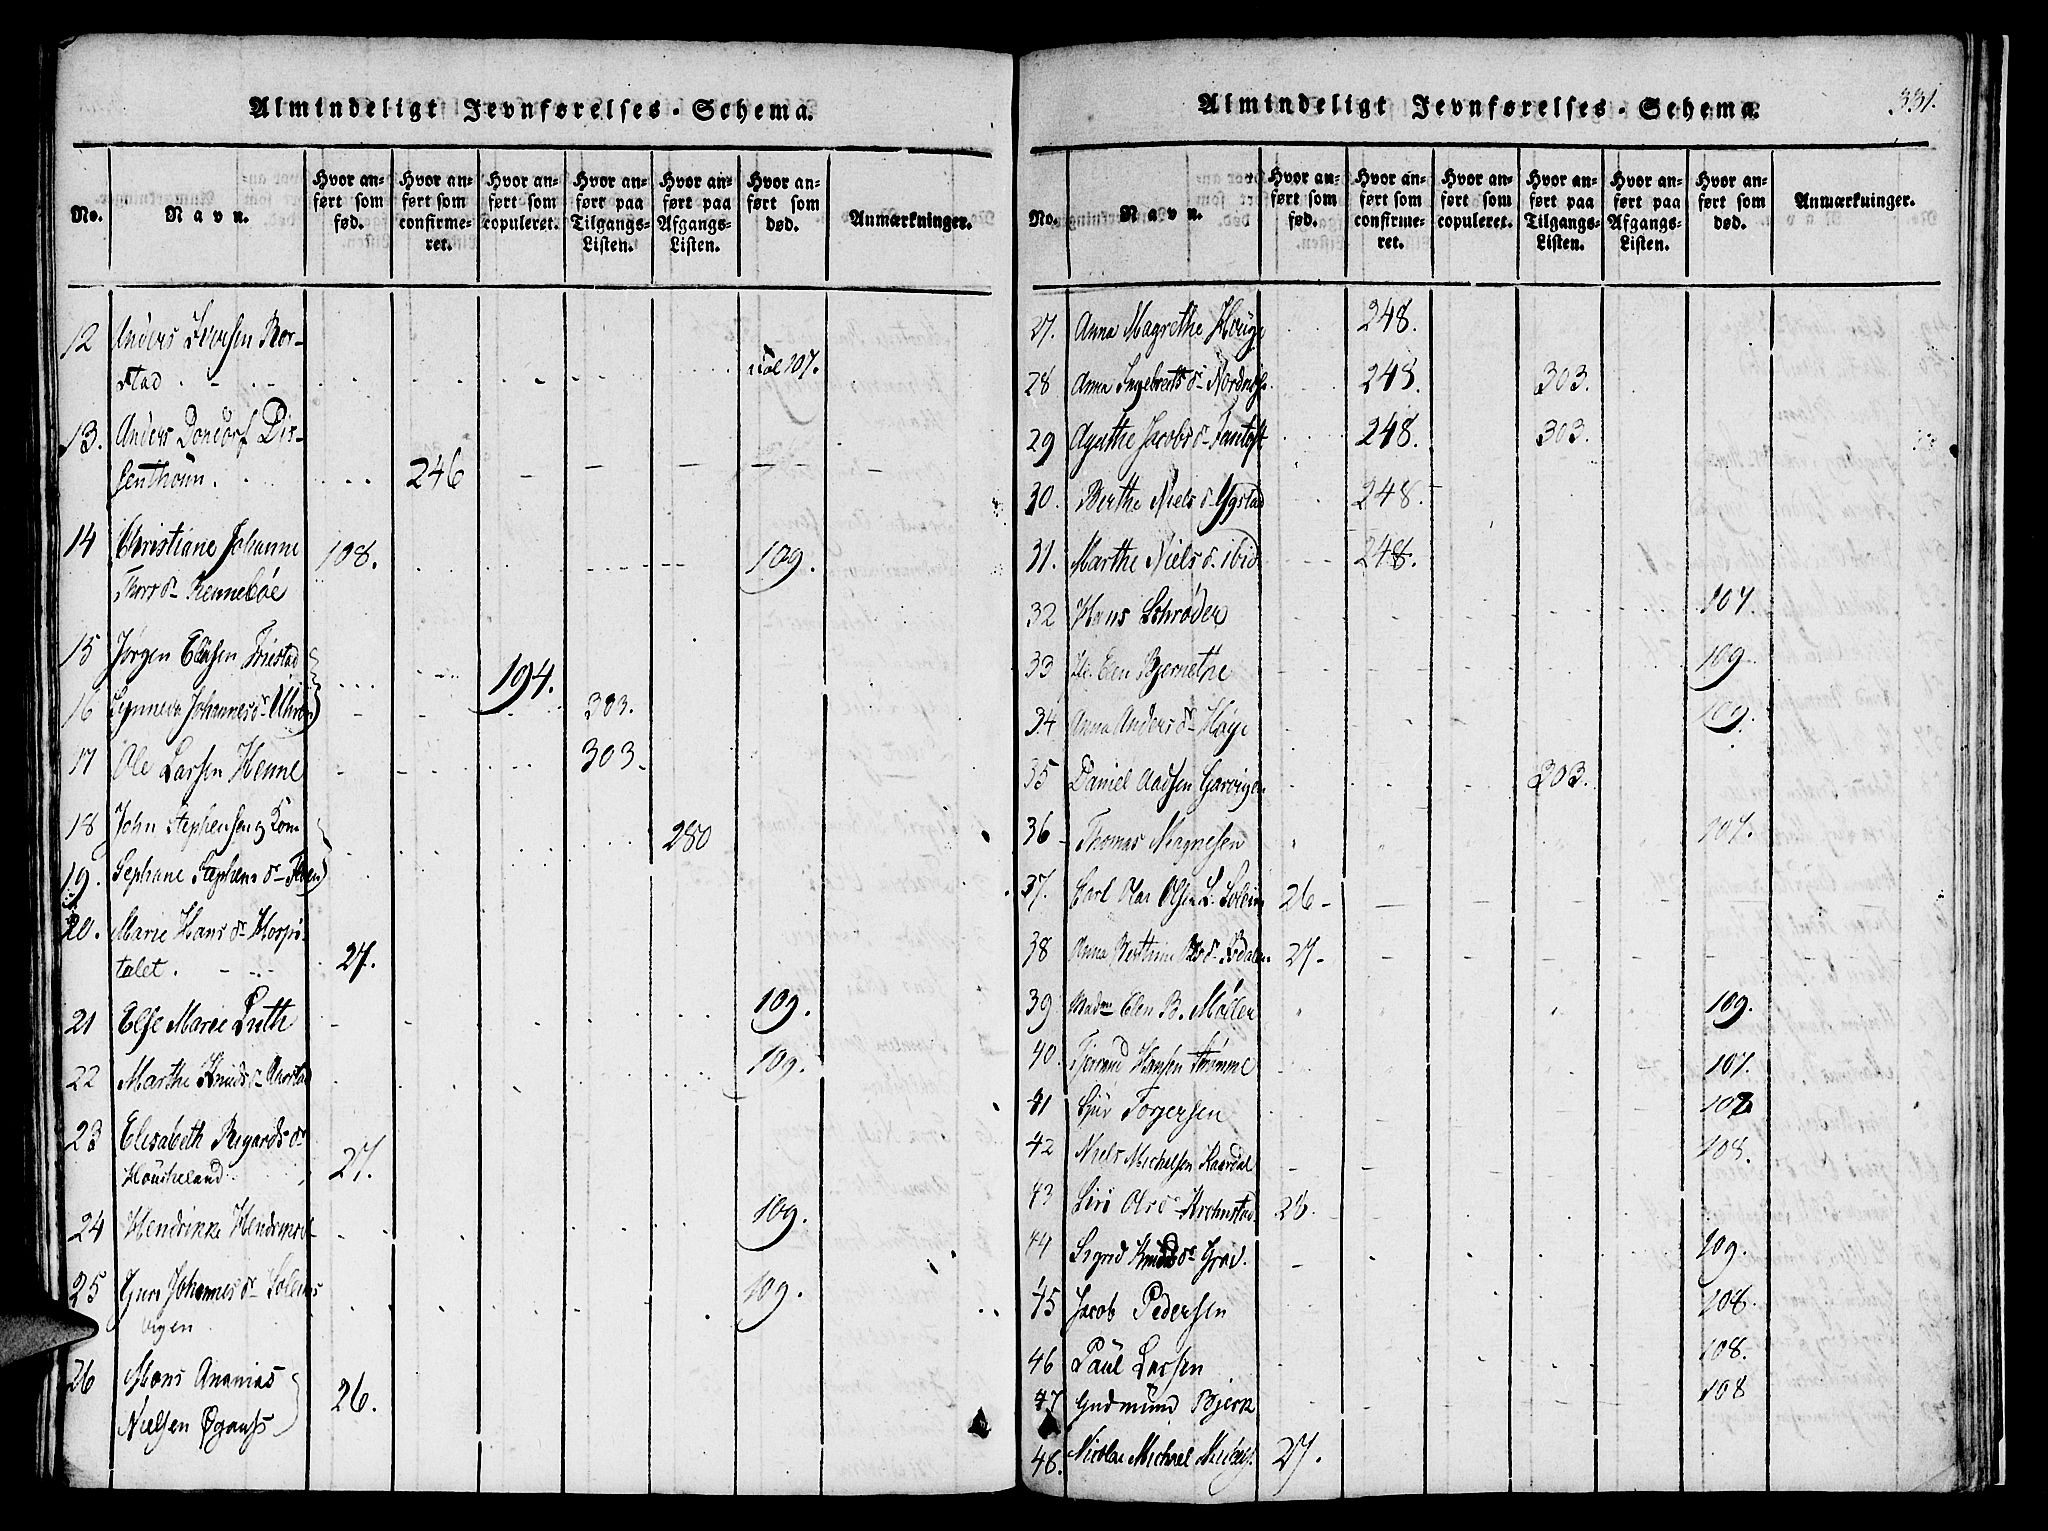 Almindeligt Jevnførelses-Schema.
No.
Navn.
Hvor anført som fød.
Hvor anført som confirmeret.
Hvor anført som copuleret.
Hvor anført paa Tilgangs-Listen.
Hvor anført paa Afgangs-Listen.
Hvor anført som død.
Anmærkninger.
12 Anders Iversen Ror-
stad . 107.
13. Anders Dondorf Dis-
senthoun . 246
14 Christiane Johanne 108. 109.
Thors d. Rennebøe
15 Jørgen Elisen Friestad 194.
16 Johannes d. 303.
17 Ole Larsen Henne 303.
18 John Stephensen og Kom 280
19. Sephane Stephens d.
20. Marie Hans d. Hospi-
talet . 27.
21 Else Marie Puth 109.
22 Marthe Knuds d. Aarstad 109.
23 Elisabeth Regards d.
Houskeland 27.
24 Hendrikke 109.
25 Guri Johannes d. Solems 109.
vigen
26 Mons Ananias 26.
Nielsen
Almindeligt Jevnførelses-Schema.
331.
No.
Navn.
Hvor anført som fød.
Hvor anført som confirmeret.
Hvor anført som copuleret.
Hvor anført paa Tilgangs-Listen.
Hvor anført paa Afgangs-Listen.
Hvor anført som død.
Anmærkninger.
27. Anna Magrethe Houge 248.
28 Anna Ingebreths d. 248. 303.
29 Agathe Jacobs d. Fantoft 248. 303.
30. Berthe Niels d. Ygstad 248.
31. Marthe Niels d. ibid. 248.
32 Hans Schrøder 107.
33 Elen Bjernethe 109.
34 Anna Anders d. Høye 109.
35 Daniel Aadsen 303.
36 Thomas Magnesen 107.
37. Carl Olai Olsen 26
38 Anna 27
39 Mad. Elen B. Møller 109.
40. Hansen Strømme 107.
41 Torgersen 108
42 Niels Michelsen Raardal 108.
43 Siri Ols d. 26.
44 Sigrid Knuds d. Grav. 109.
45 Jacob Pedersen 108.
46 Paul Larsen 108.
47 Gudmund Bjerk 108
48. Nicolai Michael 27.